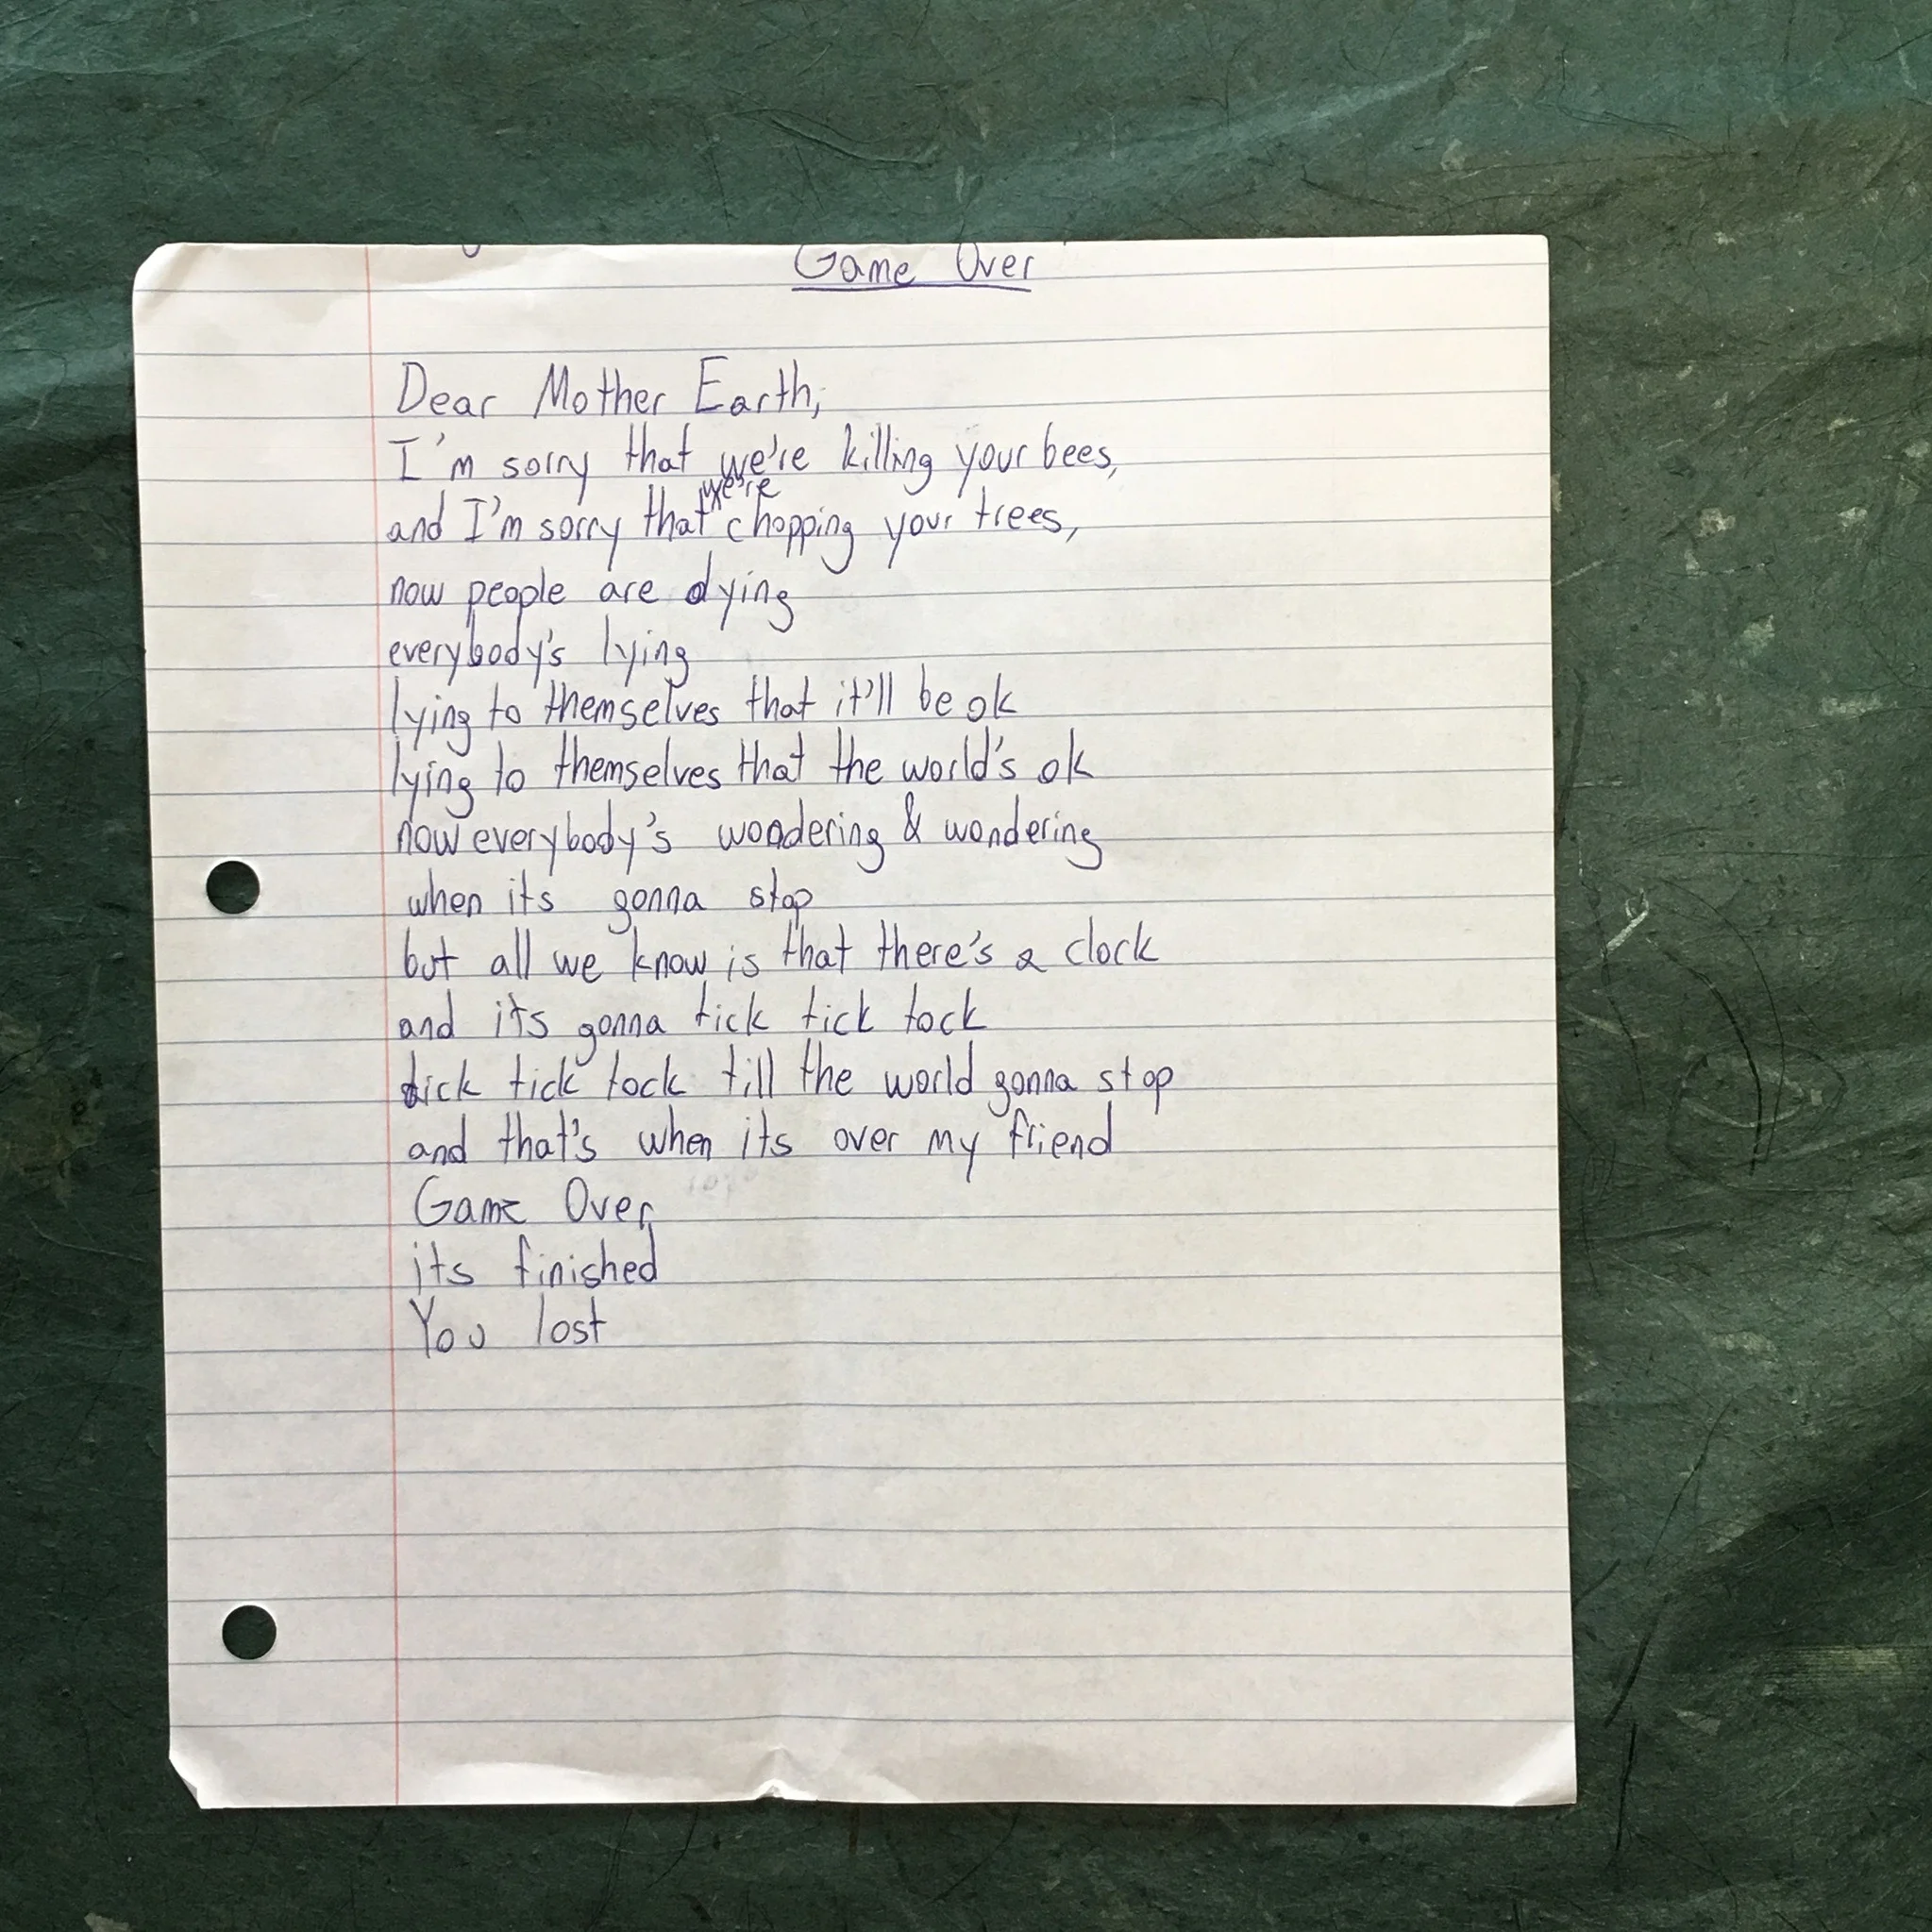 Game Over
Dear Mother Earth,
I'm sorry that we're killing your bees,
and I'm sorry that we're chopping your trees,
now people are dying
everybody's lying
lying to themselves that it'll be ok
lying to themselves that the world's ok
now everybody's wondering & wondering
when its gonna stop
but all we know is that there's a clock
and it's gonna tick tick tock
tick tick tock till the world gonna stop
and that's when its over my friend
Game Over
its finished
You lost